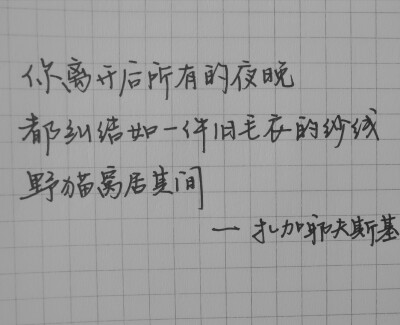 你离开后所有的夜晚
都纠结如一件旧毛衣的纱线
野猫寓居其间
— 扎加耶夫斯基